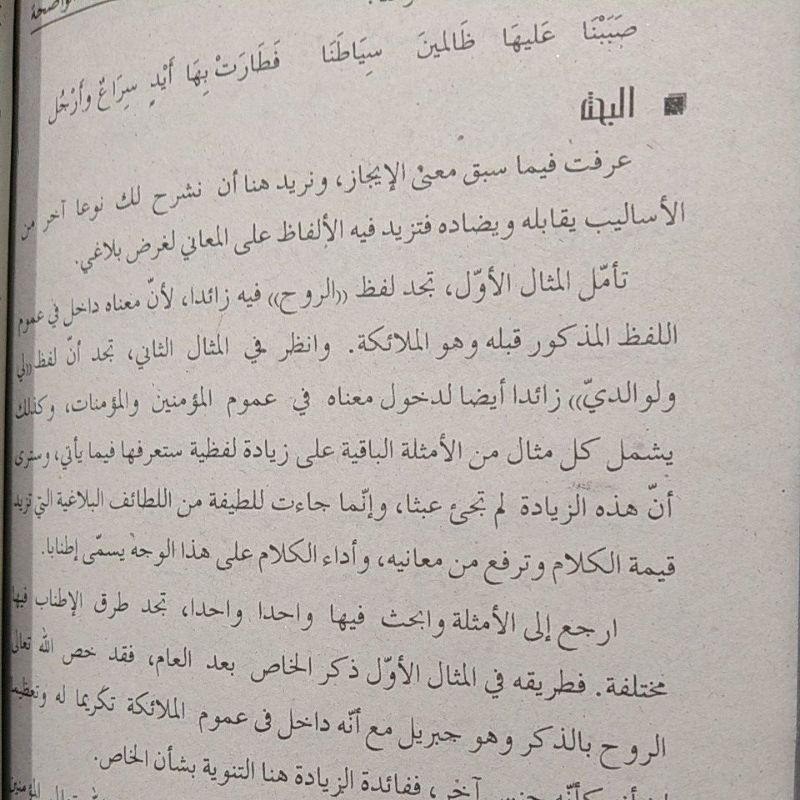 الواضحة
صَبَبْنَا عَليهَا ظَالمينَ سِيَاطَنَا فَطَارَتْ بِهَا أَيْدٍ سِرَاعٌ وأَرْجُل
البحث
عرفت فيما سبق معنى الإيجاز، ونريد هنا أن نشرح لك نوعا آخر من
الأساليب يقابله ويضاده فتزيد فيه الألفاظ على المعاني لغرض بلاغي.
تأمّل المثال الأوّل، تجد لفظ «الروح» فيه زائدا، لأنّ معناه داخل في عموم
اللفظ المذكور قبله وهو الملائكة. وانظر في المثال الثاني، تجد أنّ لفظ «لي
ولوالديّ» زائدا أيضا لدخول معناه في عموم المؤمنين والمؤمنات، وكذلك
يشمل كل مثال من الأمثلة الباقية على زيادة لفظية ستعرفها فيما يأتي، وسترى
أنّ هذه الزيادة لم تجئ عبثا، وإنّما جاءت للطيفة من اللطائف البلاغية التي تزيد
قيمة الكلام وترفع من معانيه، وأداء الكلام على هذا الوجه يسمّى إطنابا.
ارجع إلى الأمثلة وابحث فيها واحدا واحدا، تجد طرق الإطناب فيها
مختلفة. فطريقه في المثال الأوّل ذكر الخاص بعد العام، فقد خص الله تعالى
الروح بالذكر وهو جبريل مع أنّه داخل فى عموم الملائكة تكريما له وتعظيما
كأنّه جنس آخر، ففائدة الزيادة هنا التنوية بشأن الخاص.